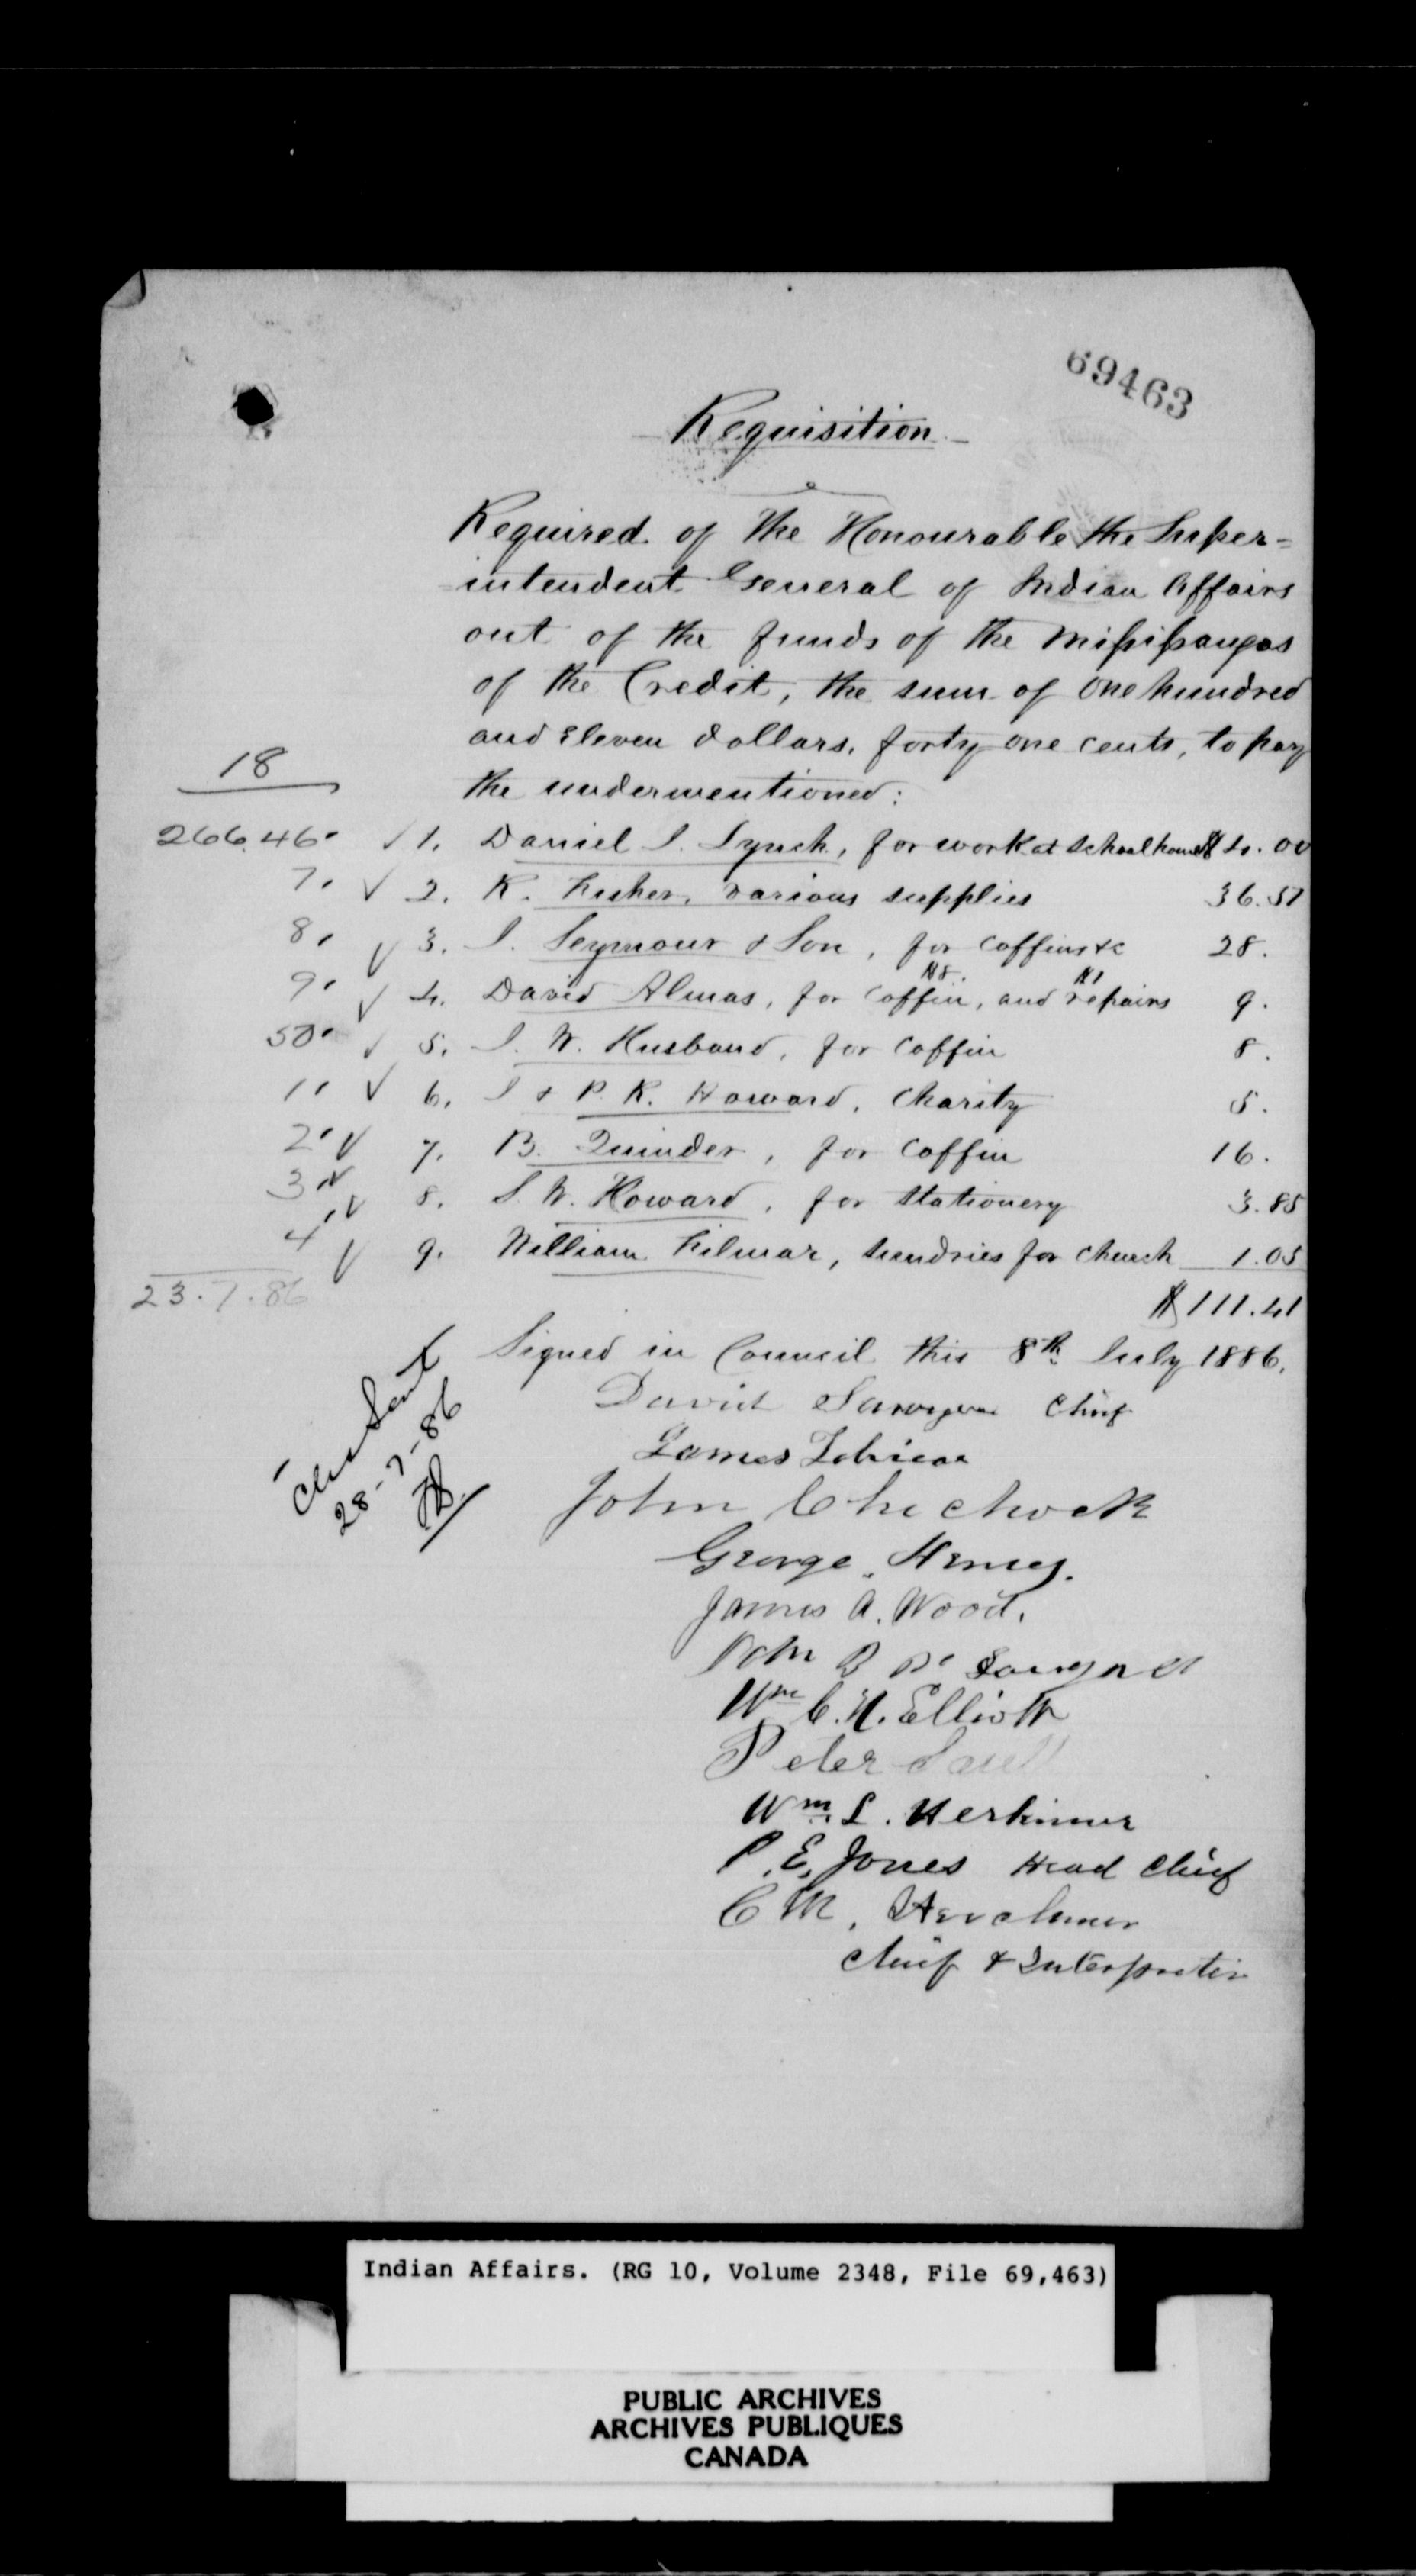 69463
Requisition
Required of the Honourable the Super-
intendent General of Indian Affairs
out of the funds of the Missisaugas
of the Credit, the sum of One hundred
and Eleven dollars, forty one cents, to pay
the undermentioned:
18
26646 1. Daniel J. Lynch, for work at schoolhouse $4.00
7 2. K. Fisher, various supplies 36.51
8 3. J. Seymour & Son, for coffins &c 28.
$8. $1
9 4. David Almas, for coffin, and repairs 9.
50 5. J. W. Husband, for coffin 8.
1 6. J & P. R. Howard, Charity 5.
2 7. B. Quinder, for coffin 16.
3 8. S. W. Howard, for stationery 3.85
4 9. William Filmar, sundries for church 1.05
23.7.86
$111.41
Signed in Council this 8th July 1886.
David Sawyer Chief
James Tobicoe
John Chechock
George Henry.
James A. Wood.
John
Wm C. H. Elliott
Peter Salt
Wm L. Herkimer
P. E. Jones Head Chief
C M. Herchmer
Chief & Interpreter
Sent
28-7-86
Indian Affairs. (RG 10, Volume 2348, File 69,463)
PUBLIC ARCHIVES
ARCHIVES PUBLIQUES
CANADA